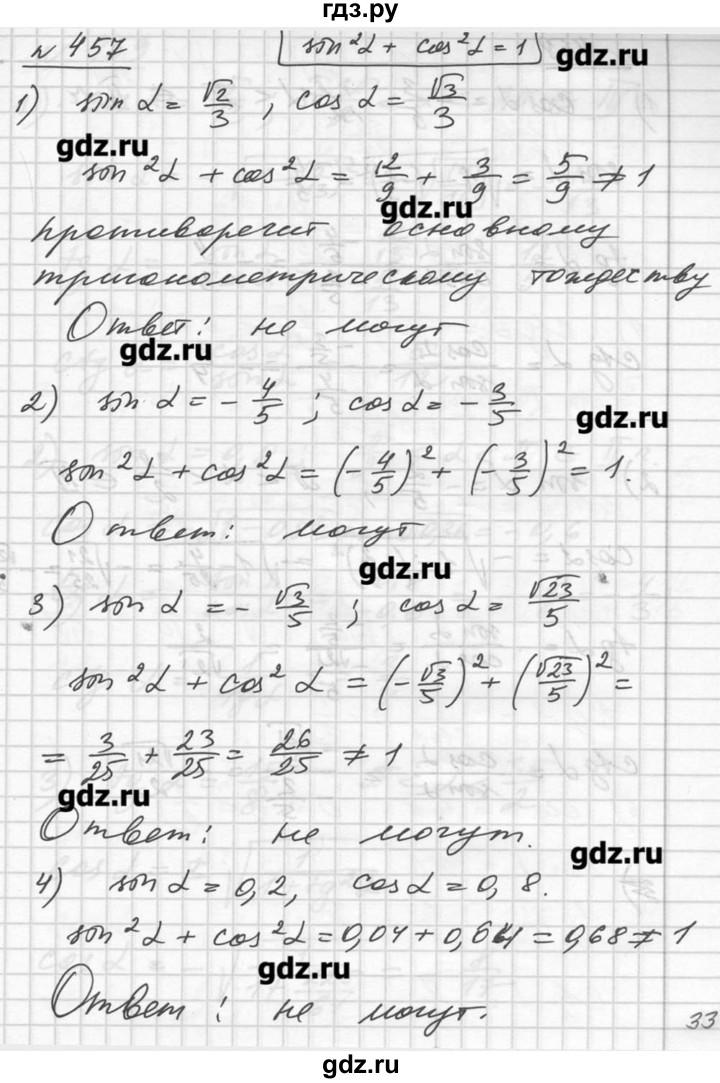 гдз.ру
№ 457
sin²α + cos²α = 1
gdz.ru
1) sin α = √2/3 , cos α = √3/3
gdz.ru
sin²α + cos²α = 2/9 + 3/9 = 5/9 ≠ 1
gdz.ru
противоречит основному
тригонометрическому тождеству
Ответ: не могут
gdz.ru
2) sin α = - 4/5 ; cos α = - 3/5
gdz.ru
sin²α + cos²α = (- 4/5)² + (- 3/5)² = 1.
Ответ: могут
gdz.ru
3) sin α = - √3/5 ; cos α = √23/5
sin²α + cos² α = (- √3/5)² + (√23/5)² =
= 3/25 + 23/25 = 26/25 ≠ 1
gdz.ru
Ответ: не могут.
gdz.ru
4) sin α = 0,2, cos α = 0,8.
sin²α + cos²α = 0,04 + 0,64 = 0,68 ≠ 1
gdz.ru
Ответ: не могут.
33
gdz.ru